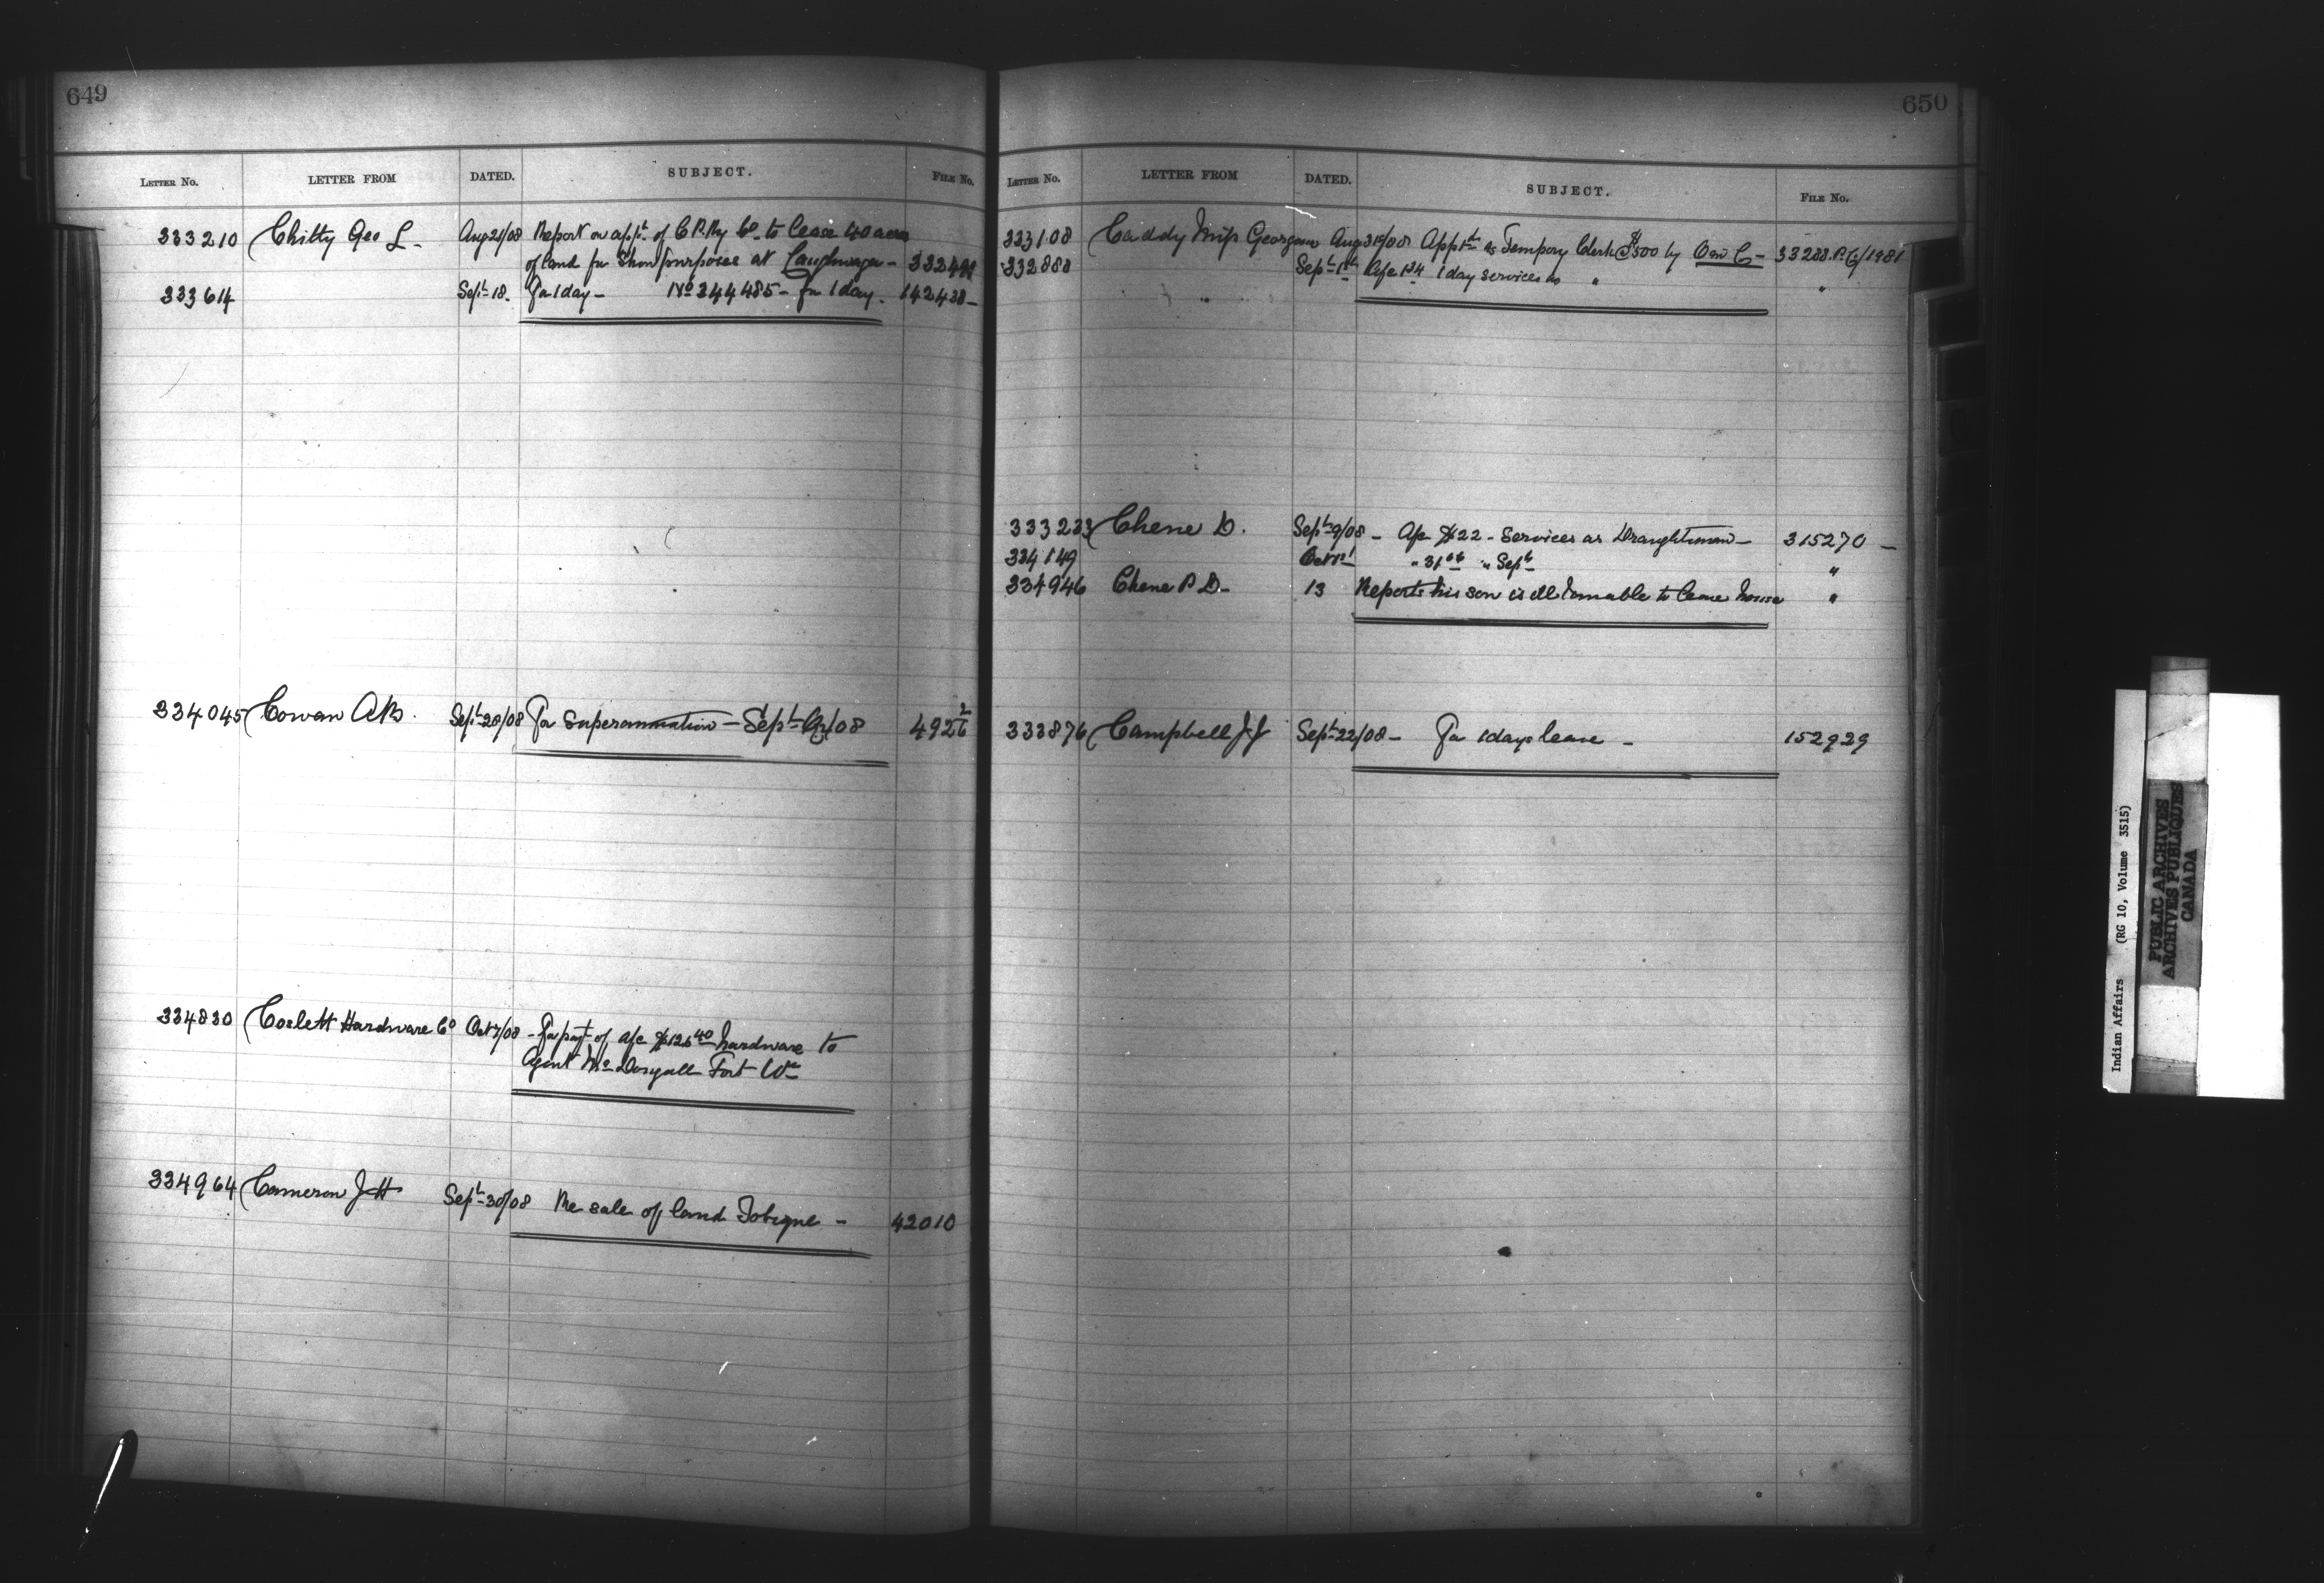 649
LETTER No. LETTER FROM DATED. SUBJECT. FILE No.
333210 Chitty Geo L - Aug 21/08 Report on applt of C P. Ry Co to lease 40 acres
of land for Show purposes at Caughnawaga -
333614 Sept 18. For 1 day - No 344485 - for 1 day. 142438 -
334045 Cowan A B. Sept 28/08 For Superannuation - Sept 08 4926 2
334830 Coslett Hardware Co Oct 7/08 - For payt of a/c $126 40 hardware to
Agent McDougall Fort Wm
334964 Cameron J H Sept 30/08 Re sale of land Tobique - 42010
650
LETTER No. LETTER FROM DATED. SUBJECT. FILE No.
333108 Caddy Miss Georgina Aug 31st/08 Appt as Tempory Clerk @ $500 by O in C - 33288. P.C./1981
332888 Sept 1st A/c 1 day services as " "
333233 Chene D. Sept 9/08 - A/c $22 - Services as Draughtsman - 315270 -
334149 Oct 1st " 31 " Sept "
334946 Chene P D - 13 Reports his son is ill & unable to leave house "
333876 Campbell J J Sept 22/08 - For 1 days leave - 152929
Indian Affairs (RG 10, Volume 3515)
PUBLIC ARCHIVES
ARCHIVES PUBLIQUES
CANADA